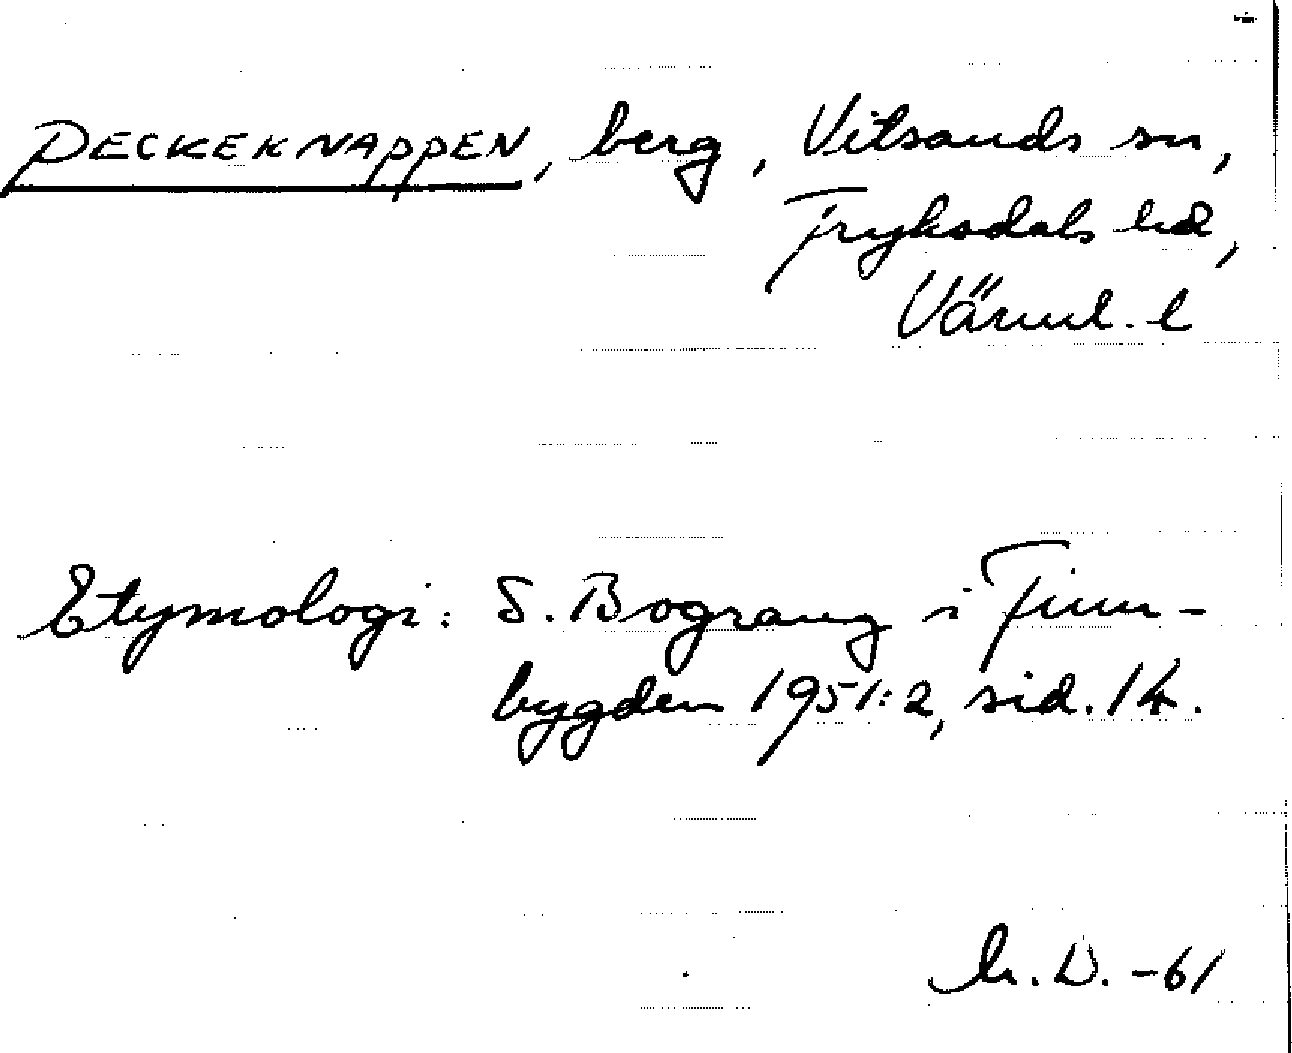 DECKEKNAPPEN, berg, Vitsands sn,
Fryksdals hd,
Värml. l
Etymologi: S. Bograng i Finn-
bygden 1951:2, sid. 14.
D. -61